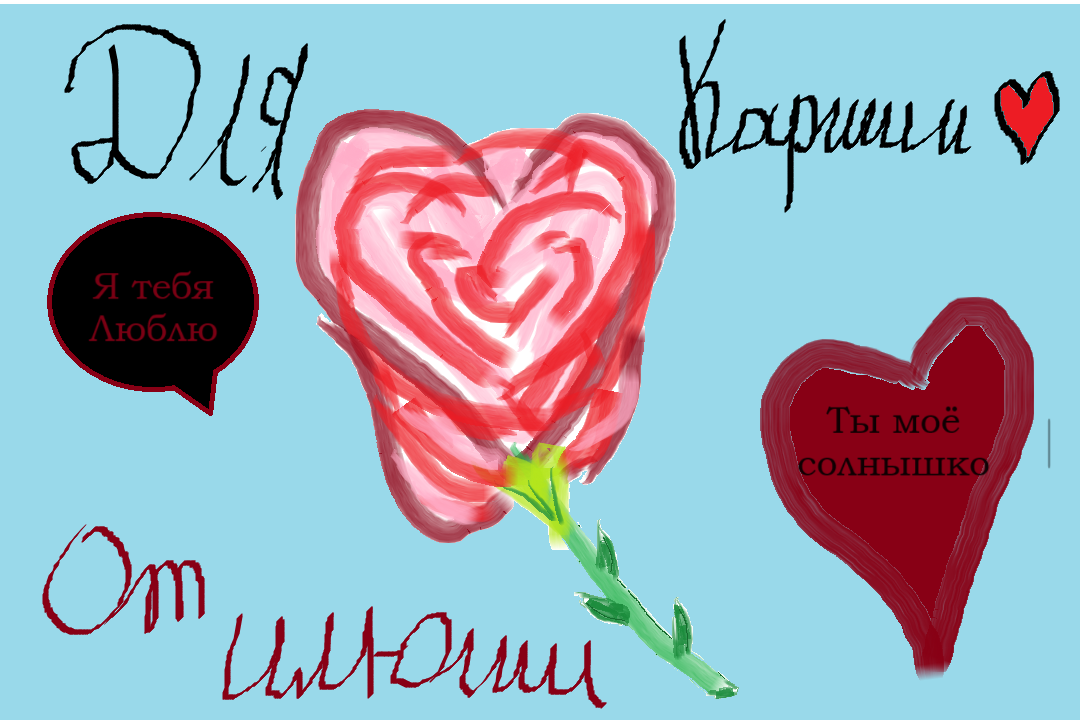 Для Кариши
Я тебя
Люблю
Ты моё
солнышко
От
илюши